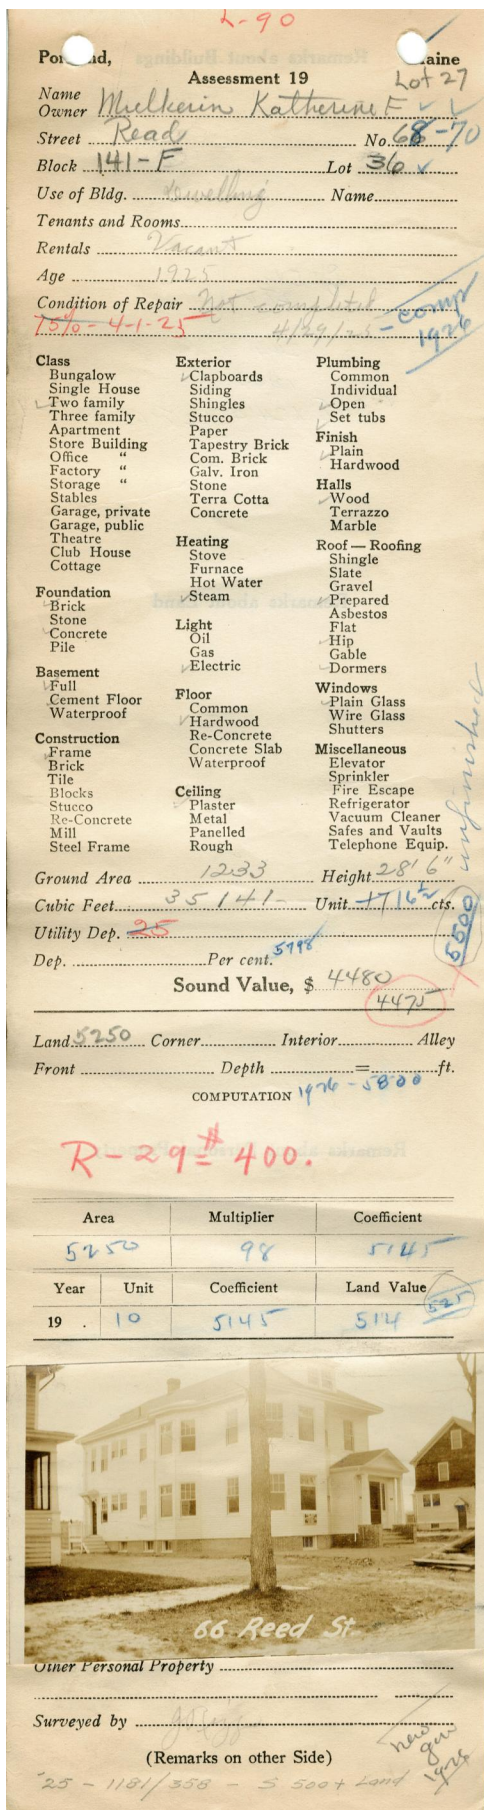 L-90
Portland, Maine
Assessment 19 Lot 27
Name
Owner Mulkerin Katherine F
Street Read No. 68-70
Block 141-F Lot 36
Use of Bldg. Dwelling Name
Tenants and Rooms
Rentals Vacant
Age 1925
Condition of Repair Not completed - comp
75% - 4-1-25 4/29/25 1926
Class
Bungalow
Single House
Two family
Three family
Apartment
Store Building
Office "
Factory "
Storage "
Stables
Garage, private
Garage, public
Theatre
Club House
Cottage
Foundation
Brick
Stone
Concrete
Pile
Basement
Full
Cement Floor
Waterproof
Construction
Frame
Brick
Tile
Blocks
Stucco
Re-Concrete
Mill
Steel Frame
Exterior
Clapboards
Siding
Shingles
Stucco
Paper
Tapestry Brick
Com. Brick
Galv. Iron
Stone
Terra Cotta
Concrete
Heating
Stove
Furnace
Hot Water
Steam
Light
Oil
Gas
Electric
Floor
Common
Hardwood
Re-Concrete
Concrete Slab
Waterproof
Ceiling
Plaster
Metal
Panelled
Rough
Plumbing
Common
Individual
Open
Set tubs
Finish
Plain
Hardwood
Halls
Wood
Terrazzo
Marble
Roof — Roofing
Shingle
Slate
Gravel
Prepared
Asbestos
Flat
Hip
Gable
Dormers
Windows
Plain Glass
Wire Glass
Shutters
Miscellaneous
Elevator
Sprinkler
Fire Escape
Refrigerator
Vacuum Cleaner
Safes and Vaults
Telephone Equip.
unfinished
5500
Ground Area 1233 Height 28' 6"
Cubic Feet 35141- Unit 16½ cts.
Utility Dep. 25
Dep. Per cent. 5798
Sound Value, $ 4480
4475
Land 5250 Corner Interior Alley
Front Depth = ft.
COMPUTATION 1926 - 5800
R-29 = $400.
Area Multiplier Coefficient
5250 98 5145
Year Unit Coefficient Land Value 525
19 . 10 5145 514
66 Reed St.
Other Personal Property
Surveyed by
(Remarks on other Side)
new
1926
'25 - 1181/358 - $ 500 + Land